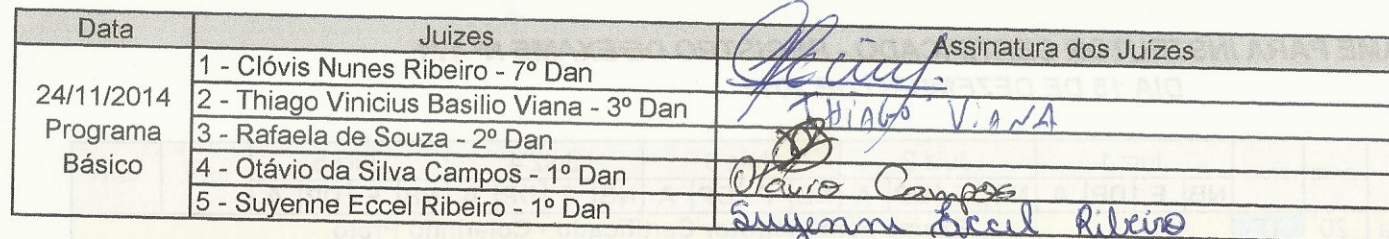 Data Juizes Assinatura dos Juízes
24/11/2014 Programa Básico
1 - Clóvis Nunes Ribeiro - 7º Dan
2 - Thiago Vinicius Basilio Viana - 3º Dan THIAGO VIANA
3 - Rafaela de Souza - 2º Dan
4 - Otávio da Silva Campos - 1º Dan Otávio Campos
5 - Suyenne Eccel Ribeiro - 1º Dan Suyenne Eccel Ribeiro